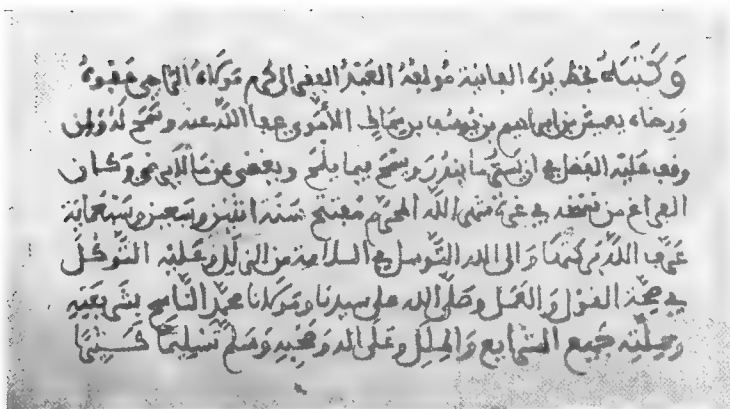 وكتبه بخط يده الفانية مؤلفه العبد الفقير الى كرم مولاه الراجي عفوه
ورضاه يعيش بن ابراهيم بن يوسف بن سماك الأموي عفا الله عنه وسمح له ولمن
وقف عليه التفضل في ان يستر ما يندر ويسمح فيما يلمح ويغضى عن ما
الفراغ من في غرة شهر الله المحرم مفتتح سنة اثنين وسبعين وسبعمائة
عرف الله بركتها والى الله التوسل في السلامة من الزلل وعليه التوكل
في صحة القول والعمل وصلى الله على سيدنا ومولانا محمد الناسخ بشريعته
وملته جميع الشرايع والملل وعلى اله وصحبه وسلم تسليما